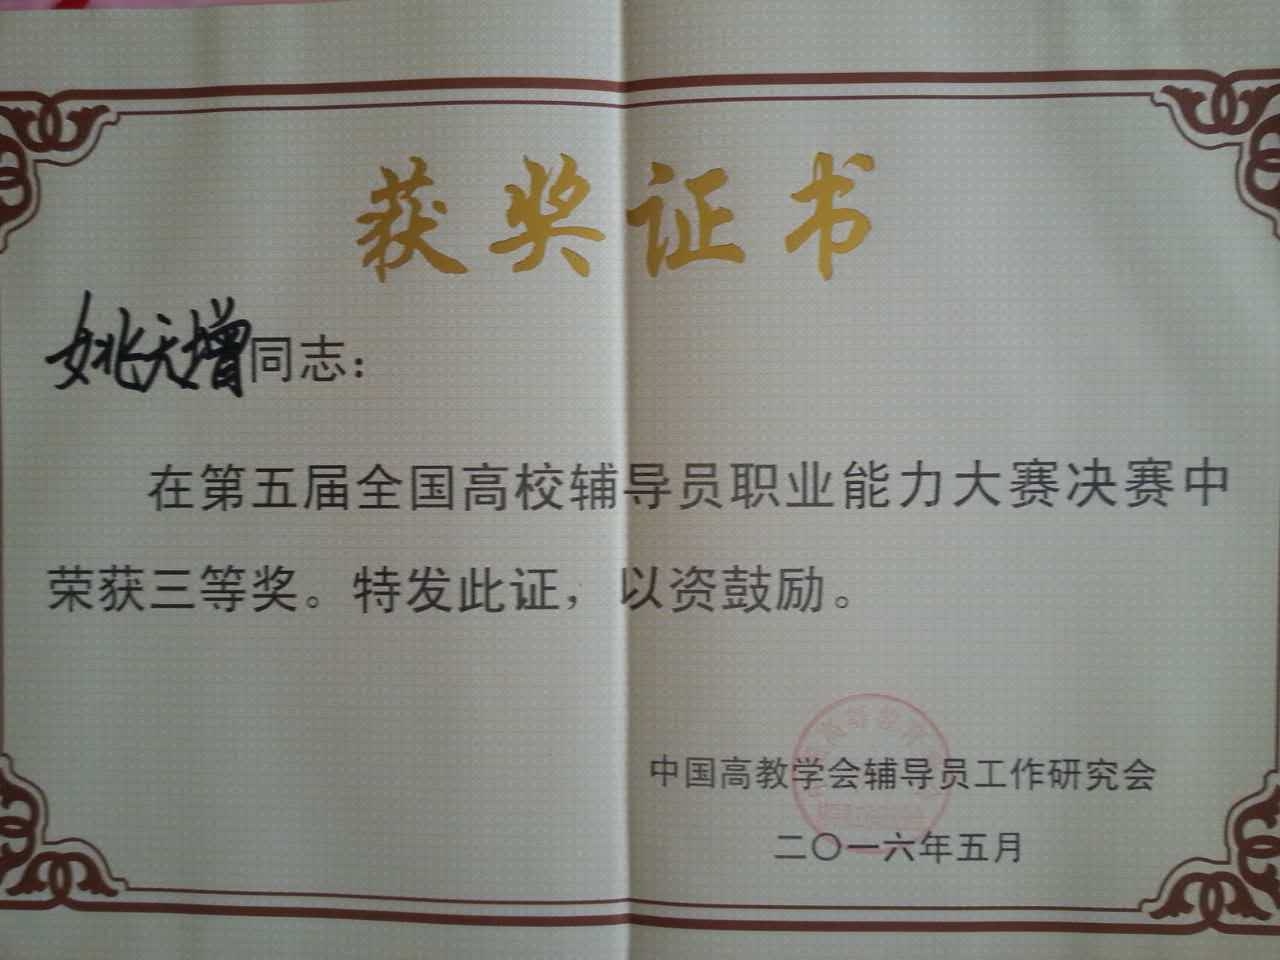 获奖证书
姚天增同志：
在第五届全国高校辅导员职业能力大赛决赛中
荣获三等奖。特发此证，以资鼓励。
中国高教学会辅导员工作研究会
二〇一六年五月